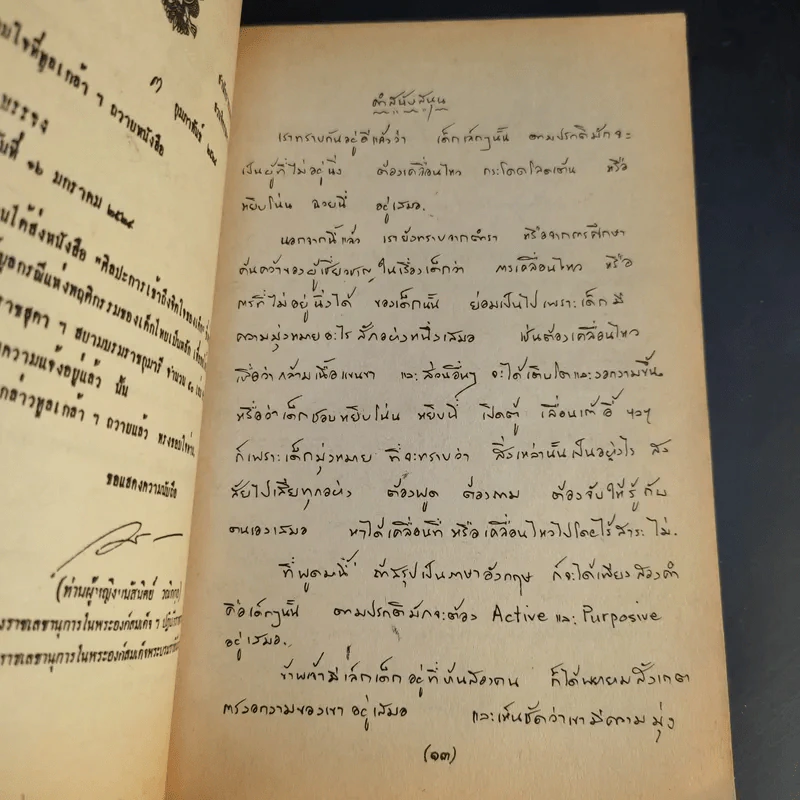 ใจที่ทูลเกล้า ฯ ถวายหนังสือ
๓ กุมภาพันธ์ ๒๕
บรรจง
ที่ ๑๖ มกราคม ๒๕๒๔
ได้ส่งหนังสือ "ศิลปะการเข้าถึงจิตใจของเด็ก
กรณีแห่งพฤติกรรมของเด็กไทยเป็นหลัก
ราชสุดา ฯ สยามบรมราชกุมารี จำนวน ๕๐
ความแจ้งอยู่แล้ว นั้น
กล่าวทูลเกล้า ฯ ถวายแล้ว ทรงขอบใจ
ขอแสดงความนับถือ
(ท่านผู้หญิง
ราชเลขานุการในพระองค์สมเด็จ ฯ
ราชเลขานุการในพระองค์สมเด็จพระบรม
คำสนับสนุน
เราทราบกันอยู่ดีแล้วว่า เด็กเล็กๆนั้น ตามปรกติมักจะ
เป็นผู้ที่ไม่อยู่นิ่ง ต้องเคลื่อนไหว กระโดดโลดเต้น หรือ
หยิบโน่น ฉวยนี่ อยู่เสมอ.
นอกจากนี้แล้ว เรายังทราบจากตำรา หรือจากการศึกษา
ค้นคว้าของผู้เชี่ยวชาญในเรื่องเด็กว่า การเคลื่อนไหว หรือ
การที่ไม่อยู่นิ่งได้ ของเด็กนั้น ย่อมเป็นไปเพราะเด็กมี
ความมุ่งหมายอะไรสักอย่างหนึ่งเสมอ เช่นต้องเคลื่อนไหว
เพื่อว่ากล้ามเนื้อแขนขา และส่วนอื่นๆ จะได้เติบโตและงอกงามขึ้น
หรือว่าเด็กชอบหยิบโน่น หยิบนี่ เปิดตู้ เลื่อนเก้าอี้ ฯลฯ
ก็เพราะเด็กมุ่งหมาย ที่จะทราบว่า สิ่งเหล่านั้นเป็นอย่างไร สง
สัยไปเสียทุกอย่าง ต้องพูด ต้องถาม ต้องจับให้รู้กับ
ตนเองเสมอ หาได้เคลื่อนที่ หรือเคลื่อนไหวไปโดยไร้สาระไม่.
ที่พูดมานี้ ถ้าสรุปเป็นภาษาอังกฤษ ก็จะได้เพียงสองคำ
คือเด็กๆนั้น ตามปรกติมักจะต้อง Active และ Purposive
อยู่เสมอ.
ข้าพเจ้ามีเล็กเด็กอยู่ที่บ้านสองคน ก็ได้พยายามสังเกต
ความงอกงามของเขาอยู่เสมอ และเห็นชัดว่าเขามีความมุ่ง
(๑๓)